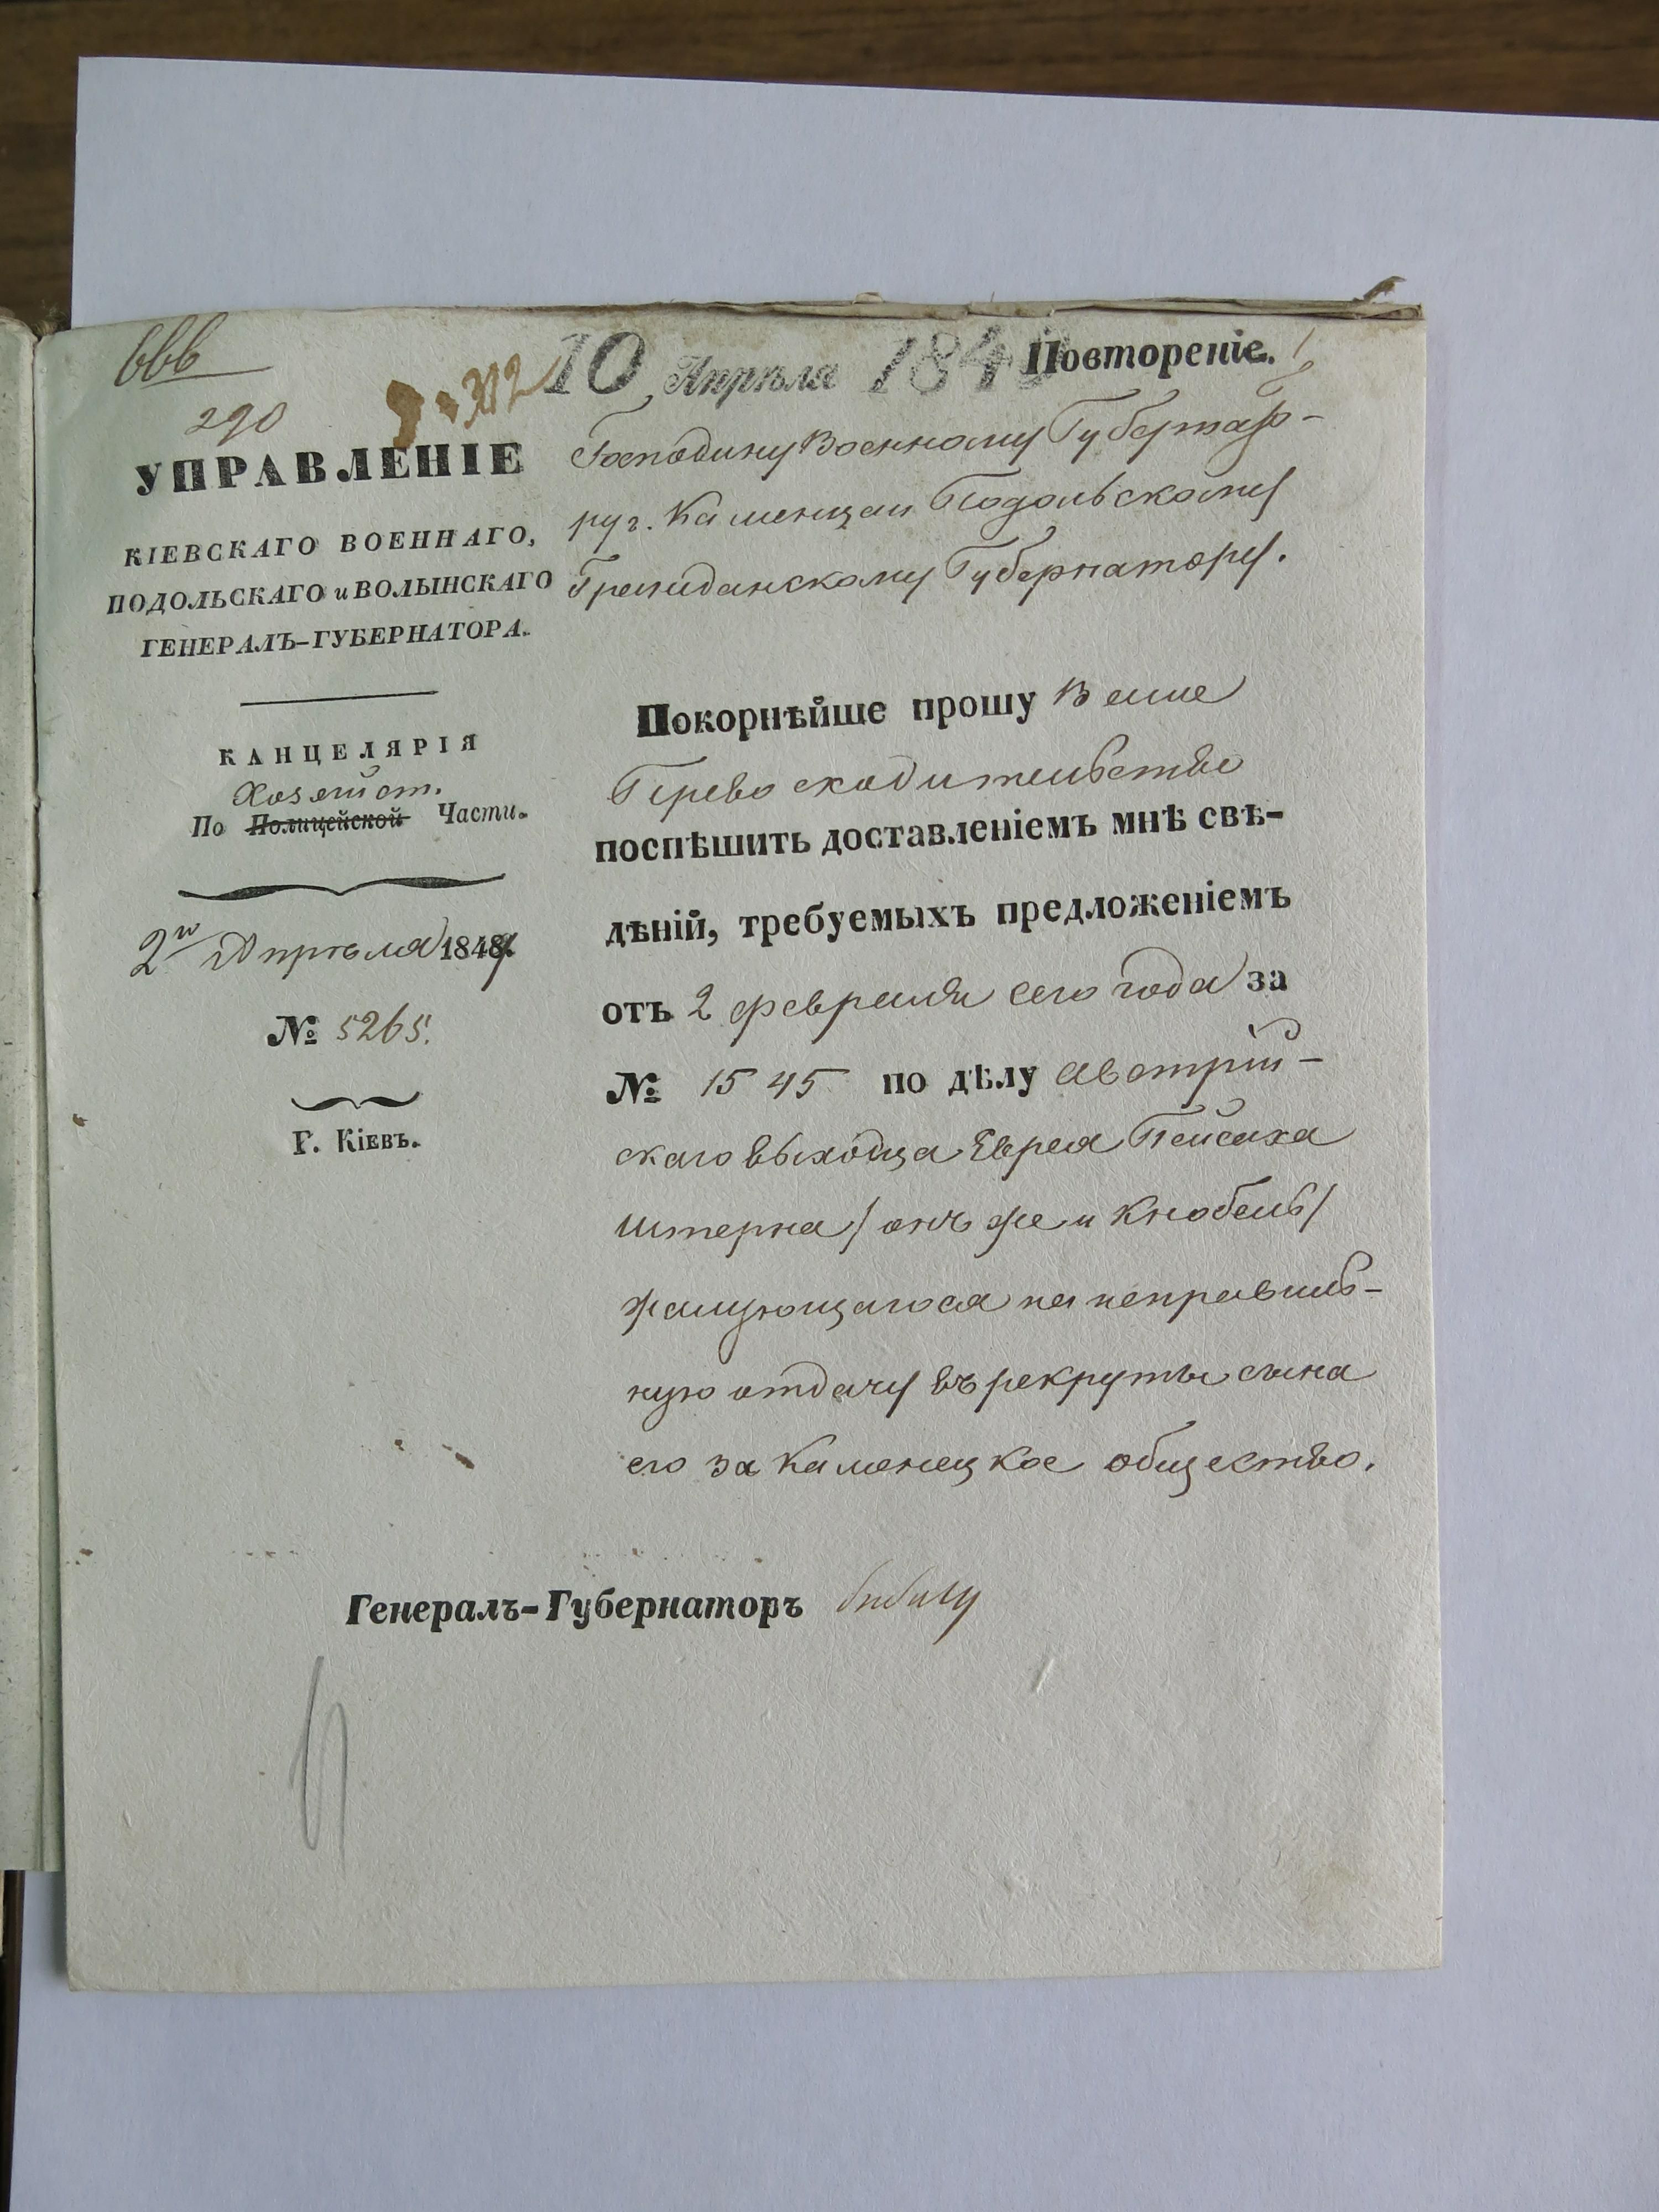 666
290
10 Апрѣля 184
Повтореніе.
УПРАВЛЕНІЕ
КІЕВСКАГО ВОЕННАГО,
ПОДОЛЬСКАГО и ВОЛЫНСКАГО
ГЕНЕРАЛЪ-ГУБЕРНАТОРА.
КАНЦЕЛЯРІЯ
Хозяйст.
По Полицейской Части.
2го Апрѣля 1849.
№ 5265.
Г. Кіевъ.
Господину Военному Губернато-
ру г. Каменца и Подольскому
Гражданскому Губернатору.
Покорнѣйше прошу Ваше
Превосходительство
поспѣшить доставленіемъ мнѣ свѣ-
дѣній, требуемыхъ предложеніемъ
отъ 2 февраля сего года за
№ 1545 по дѣлу австрій-
скаго выходца Еврея Пейсаха
Штерна /онъ же и Кнобель/
жалующагося на неправиль-
ную отдачу въ рекруты сына
его за Каменецкое общество.
Генералъ-Губернаторъ Бибиковъ